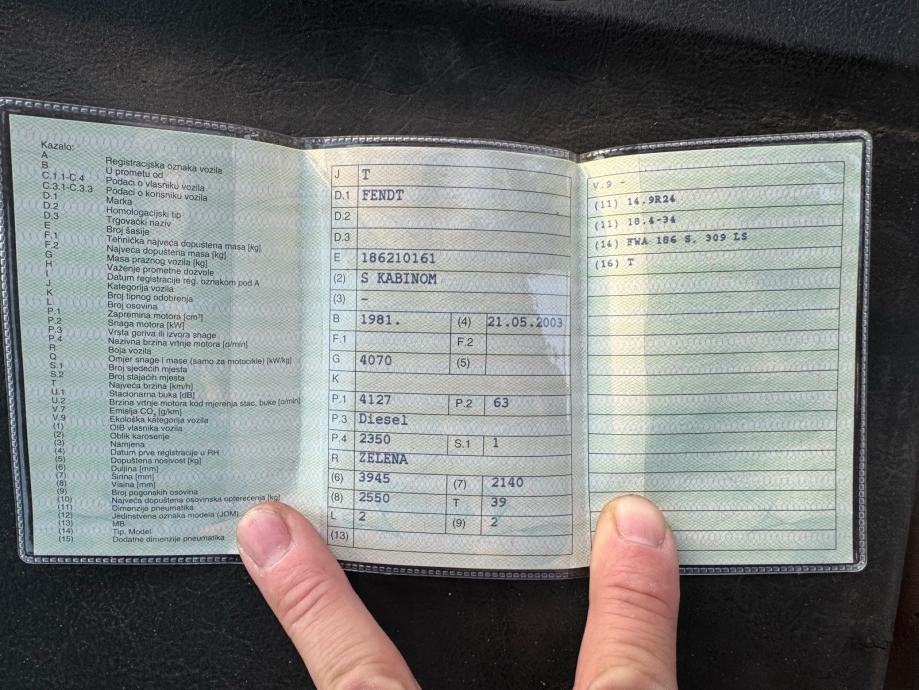 Kazalo:
A Registracijska oznaka vozila
B U prometu od
C.1.1-C.4 Podaci o vlasniku vozila
C.3.1-C.3.3 Podaci o korisniku vozila
D.1 Marka
D.2 Homologacijski tip
D.3 Trgovački naziv
E Broj šasije
F.1 Tehnička najveća dopuštena masa [kg]
F.2 Najveća dopuštena masa [kg]
G Masa praznog vozila [kg]
H Važenje prometne dozvole
I Datum registracije reg. oznakom pod A
J Kategorija vozila
K Broj tipnog odobrenja
L Broj osovina
P.1 Zapremina motora [cm³]
P.2 Snaga motora [kW]
P.3 Vrsta goriva ili izvora snage
P.4 Nazivna brzina vrtnje motora [o/min]
R Boja vozila
Q Omjer snage i mase (samo za motocikle) [kW/kg]
S.1 Broj sjedećih mjesta
S.2 Broj stajaćih mjesta
T Najveća brzina [km/h]
U.1 Stacionarna buka [dB]
U.2 Brzina vrtnje motora kod mjerenja stac. buke [o/min]
V.7 Emisija CO₂ [g/km]
V.9 Ekološka kategorija vozila
(1) OIB vlasnika vozila
(2) Oblik karoserije
(3) Namjena
(4) Datum prve registracije u RH
(5) Dopuštena nosivost [kg]
(6) Duljina [mm]
(7) Širina [mm]
(8) Visina [mm]
(9) Broj pogonskih osovina
(10) Najveća dopuštena osovinska opterećenja [kg]
(11) Dimenzije pneumatika
(12) Jedinstvena oznaka modela (JOM)
(13) MB
(14) Tip, Model
(15) Dodatne dimenzije pneumatika
J T
D.1 FENDT
D.2
D.3
E 186210161
(2) S KABINOM
(3) –
B 1981. (4) 21.05.2003
F.1 F.2
G 4070 (5)
K
P.1 4127 P.2 63
P.3 Diesel
P.4 2350 S.1 1
R ZELENA
(6) 3945 (7) 2140
(8) 2550 T 39
L 2 (9) 2
(13)
V.9 -
(11) 14.9R24
(11) 18.4-34
(14) FWA 186 S, 309 LS
(16) T